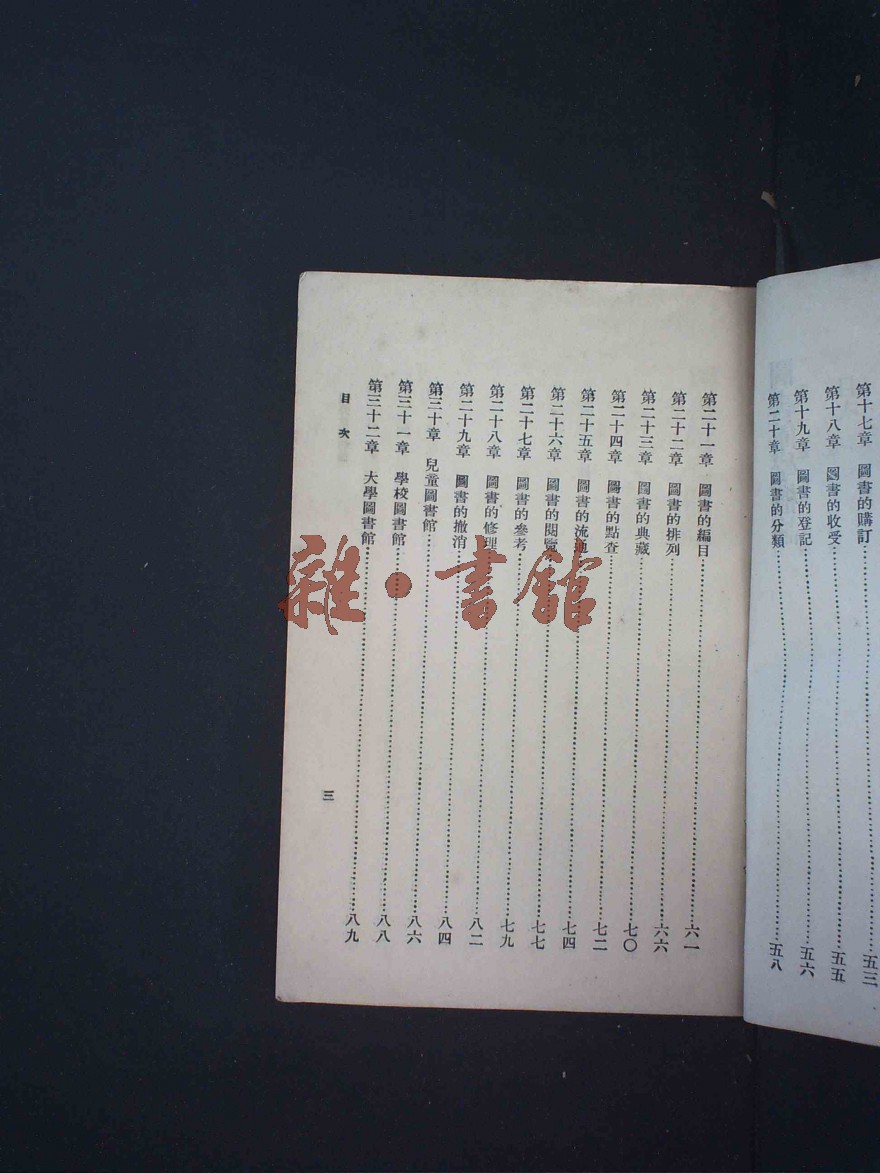 第十七章　圖書的購訂……五三
第十八章　圖書的收受……五五
第十九章　圖書的登記……五六
第二十章　圖書的分類……五八
第二十一章　圖書的編目……六一
第二十二章　圖書的排列……六六
第二十三章　圖書的典藏……七〇
第二十四章　圖書的點查……七二
第二十五章　圖書的流通……七四
第二十六章　圖書的閱覽……七七
第二十七章　圖書的參考……七九
第二十八章　圖書的修理……八二
第二十九章　圖書的撤消……八四
第三十章　兒童圖書館……八六
第三十一章　學校圖書館……八八
第三十二章　大學圖書館……八九
目次
三
雜·書館